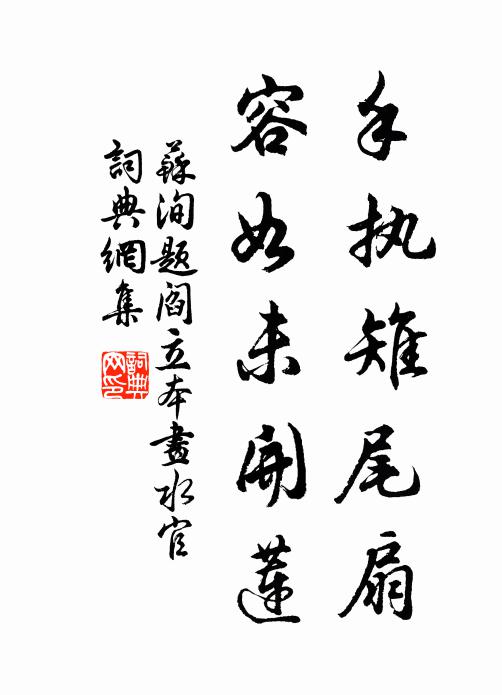 手执雉尾扇
容如未開蓮
蘇洵题閻立本畫水官
詞典網集
詞典网印